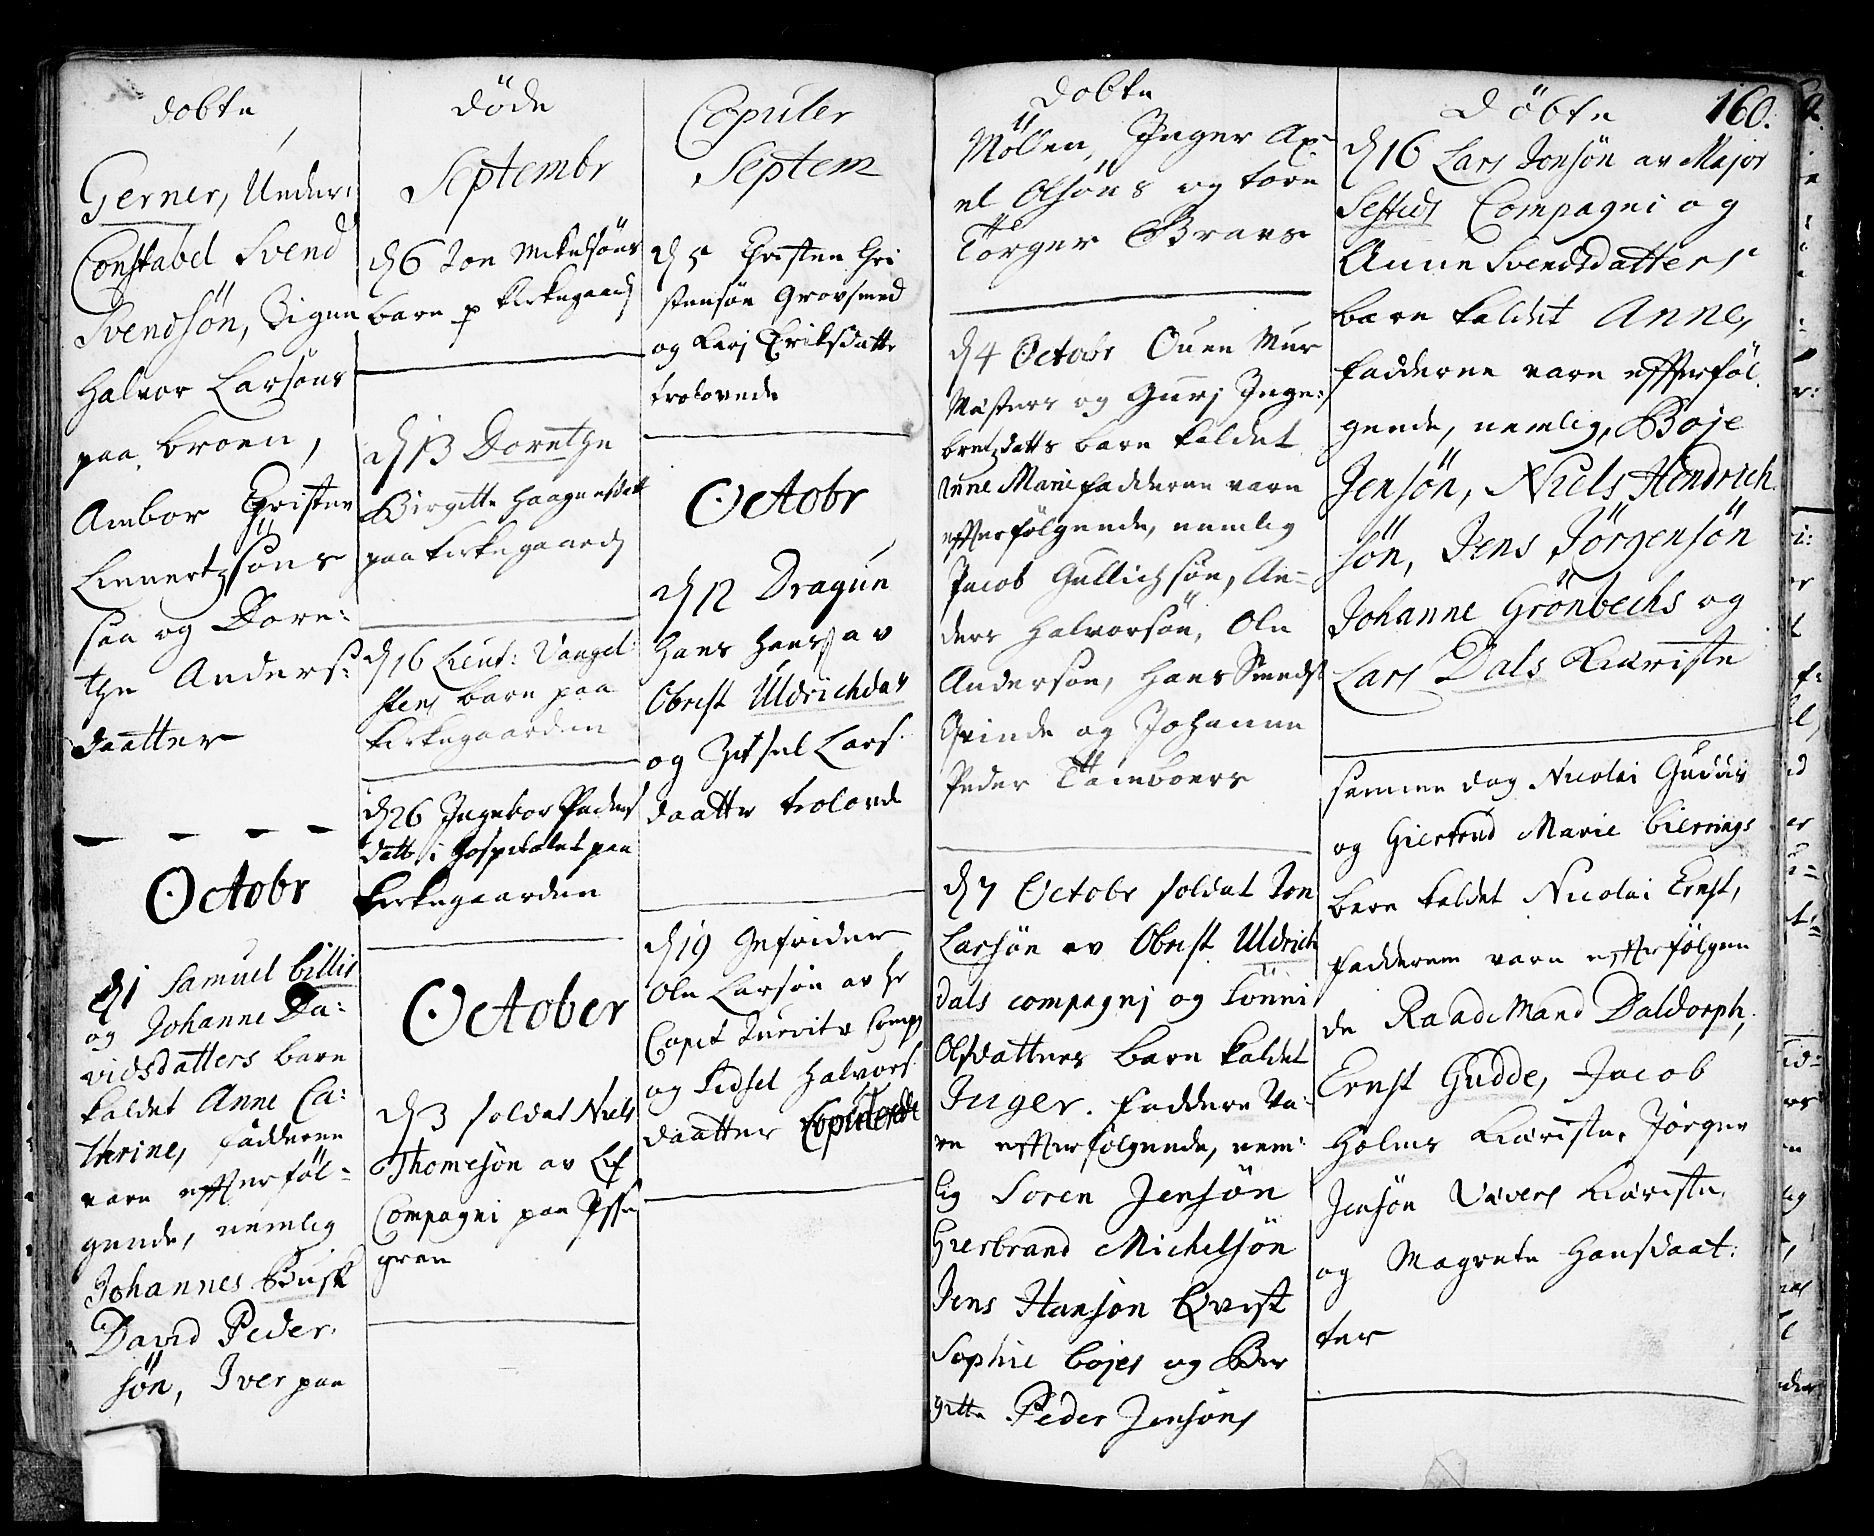 dobte
Gerner, Under:
Constabel Svend
Svendsön, Signe
Halvor Larsöns
paa broen,
Ambor Christen
Linnertzsöns
saa og Dore:
the Anders:
daatter
Octobr
d 1 Samuel billis
og Johanne Da:
vidsdatters barn
kaldet Anne Ca:
thrine, fadderne
vare effterföl=
gende, nemlig
Johannes Busk
David Peder
sön, Iver paa
döde
Septembr
d 6 Jon Mikelsöns
barn p kirkegaard
d 13 Dorethe
Birgitte Haagensdat
paa kirkegaard
d 16 Lieut: Vangel
stens barn paa
kirkegaarden
d 26 Ingebor Peders
datt i Hospitalet paa
kirkegaarden
October
d 3 soldat Niels
Thomesön av Lif
Compagni paa
gran
Copuler
Septem
d 5 Christen Chri
stensön Grovsmed
og Karj Eriksdatte
trolovede
Octobr
d 12 Dragun
Hans Hans av
Obrist Uldrichdas
og Zitsel Lars
daatter trolovd
d 19 Gefrider
Ole Larsön av hr
Capit Comp
og Sidsel Halvors
daatter Copulerede
dobte
Möllen, Inger Ax=
el Olsöns og tore
Törger Braas
d 4 Octobr Ouen Mur
Mesters og Gurj Inge:
bretzdatts barn kaldet
Anne Marie fadderne vare
effterfölgende, nemlig
Jacob Gullichsön, An=
ders Halvorsön, Ole
Andersön, Hans Smeds
Qvinde og Johanne
Peder Tamboers
d 7 Octobr soldat Jon
Larsön av Obrist Uldrich
dals compagnj og Sönni
Olsdatters barn kaldet
Inger. Faddere Va:
re effterfölgende, nem:
lig Soren Jensön
Gierbrand Michelsön
Jens Hansön Qvist
Sophie bojes og Bir
gitte Peder Jensöns
Döbte 160.
d 16 Lars Jonsön av Major
Sesteds Compagni og
Anne Svendsdatters
barn kaldet Anne,
fadderne vare effterföl
gende, nemlig, Boje
Jensön, Niels Hendrich
sön, Jens Jörgensön
Johanne Grönbechs og
Lars Dals Kiæriste
samme dag Nicolai Gudes
og Giertrud Marie bierrings
barn kaldet Nicolai Ernst,
fadderne vare effterfölgen
de Raad Mand Daldorph,
Ernst Gudde, Jacob
Holms Kiæriste, Jörgen
Jensön Vævers Kiæriste,
og Magrete Hansdaat:
ter